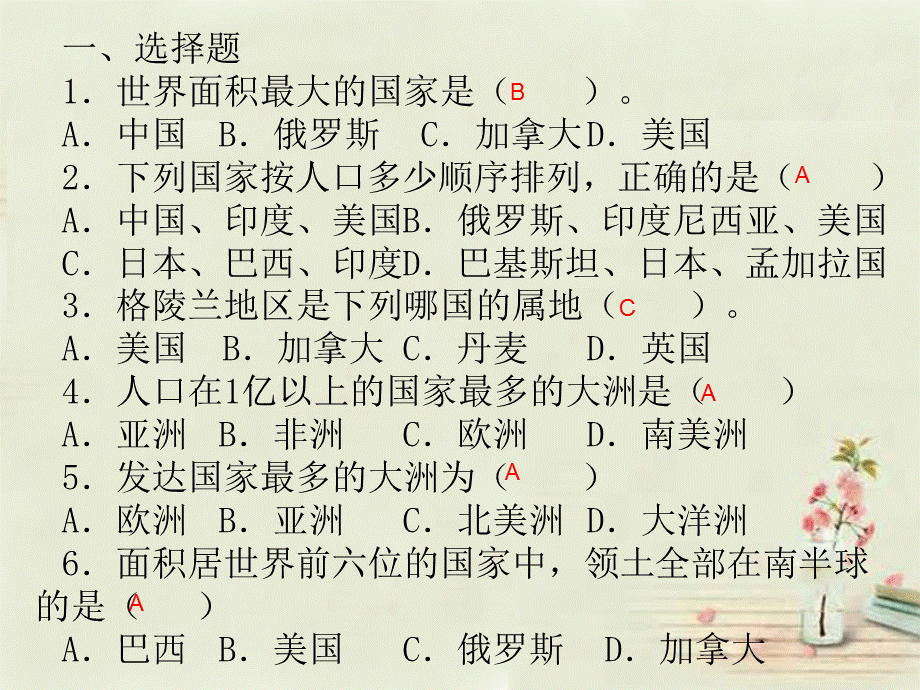 一、选择题
1．世界面积最大的国家是（B　）。
A．中国 B．俄罗斯 C．加拿大D．美国
2．下列国家按人口多少顺序排列，正确的是（A　）
A．中国、印度、美国B．俄罗斯、印度尼西亚、美国
C．日本、巴西、印度D．巴基斯坦、日本、孟加拉国
3．格陵兰地区是下列哪国的属地（C　）。
A．美国 B．加拿大 C．丹麦 D．英国
4．人口在1亿以上的国家最多的大洲是（A　）
A．亚洲 B．非洲 C．欧洲 D．南美洲
5．发达国家最多的大洲为（A　）
A．欧洲 B．亚洲 C．北美洲 D．大洋洲
6．面积居世界前六位的国家中，领土全部在南半球
的是（A　）
A．巴西 B．美国 C．俄罗斯 D．加拿大